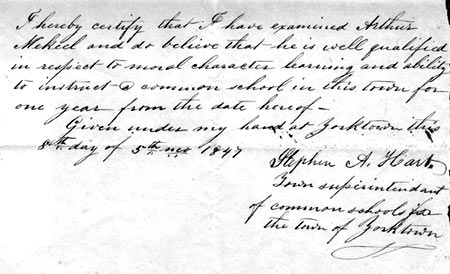 I hereby certify that I have examined Arthur
Mekeel and do believe that he is well qualified
in respect to moral character learning and ability
to instruct a common school in this town for
one year from the date hereof –
Given under my hand at Yorktown this
8th day of 5th mo 1847
Stephen A. Hart.
Town supirintendant
of common schools for
the town of Yorktown